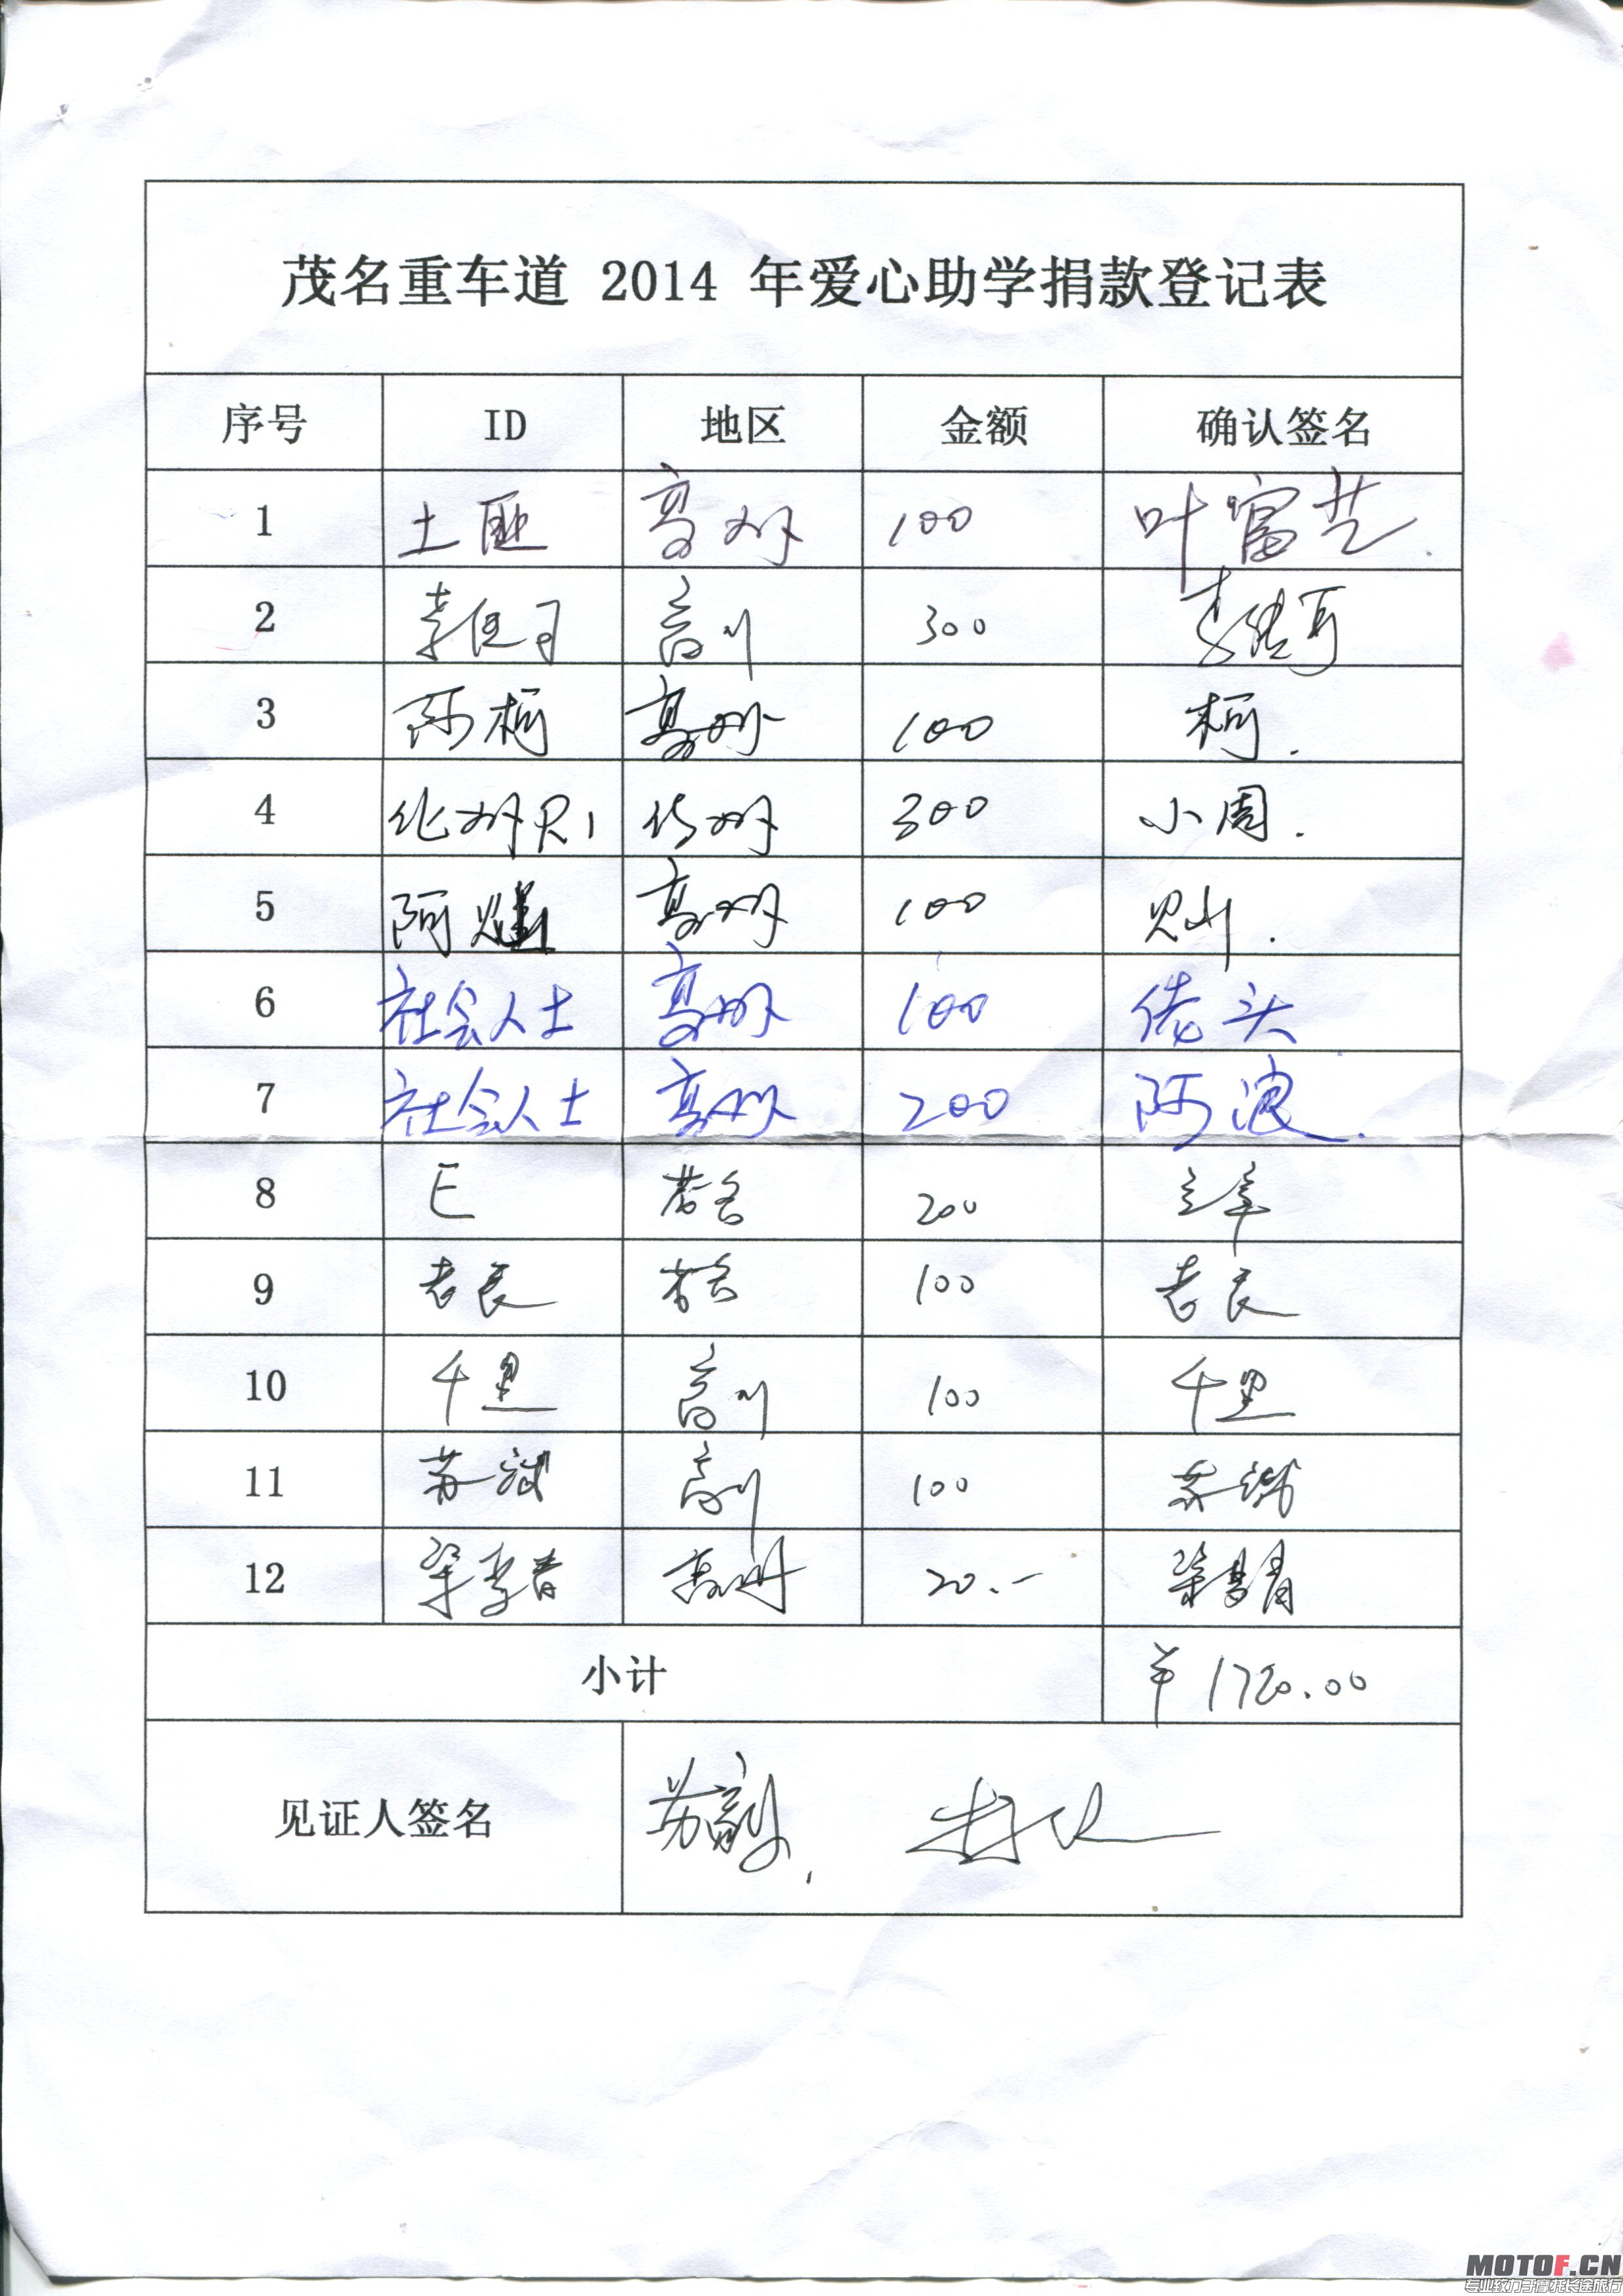 茂名重车道 2014 年爱心助学捐款登记表
序号 ID 地区 金额 确认签名
1 土匪 高州 100 叶富芝.
2 高州 300
3 阿柯 高州 100 柯.
4 化州R1 化州 300 小周.
5 阿 高州 100
6 社会人士 高州 100 佬头
7 社会人士 高州 200 阿浪.
8 E 茂名 200
9 老良 茂名 100 老良
10 千里 高州 100 千里
11 苏斌 高州 100 苏斌
12 高州 20.-
小计 ¥1720.00
见证人签名
MOTOF.CN
专业致力于摩托长途旅行